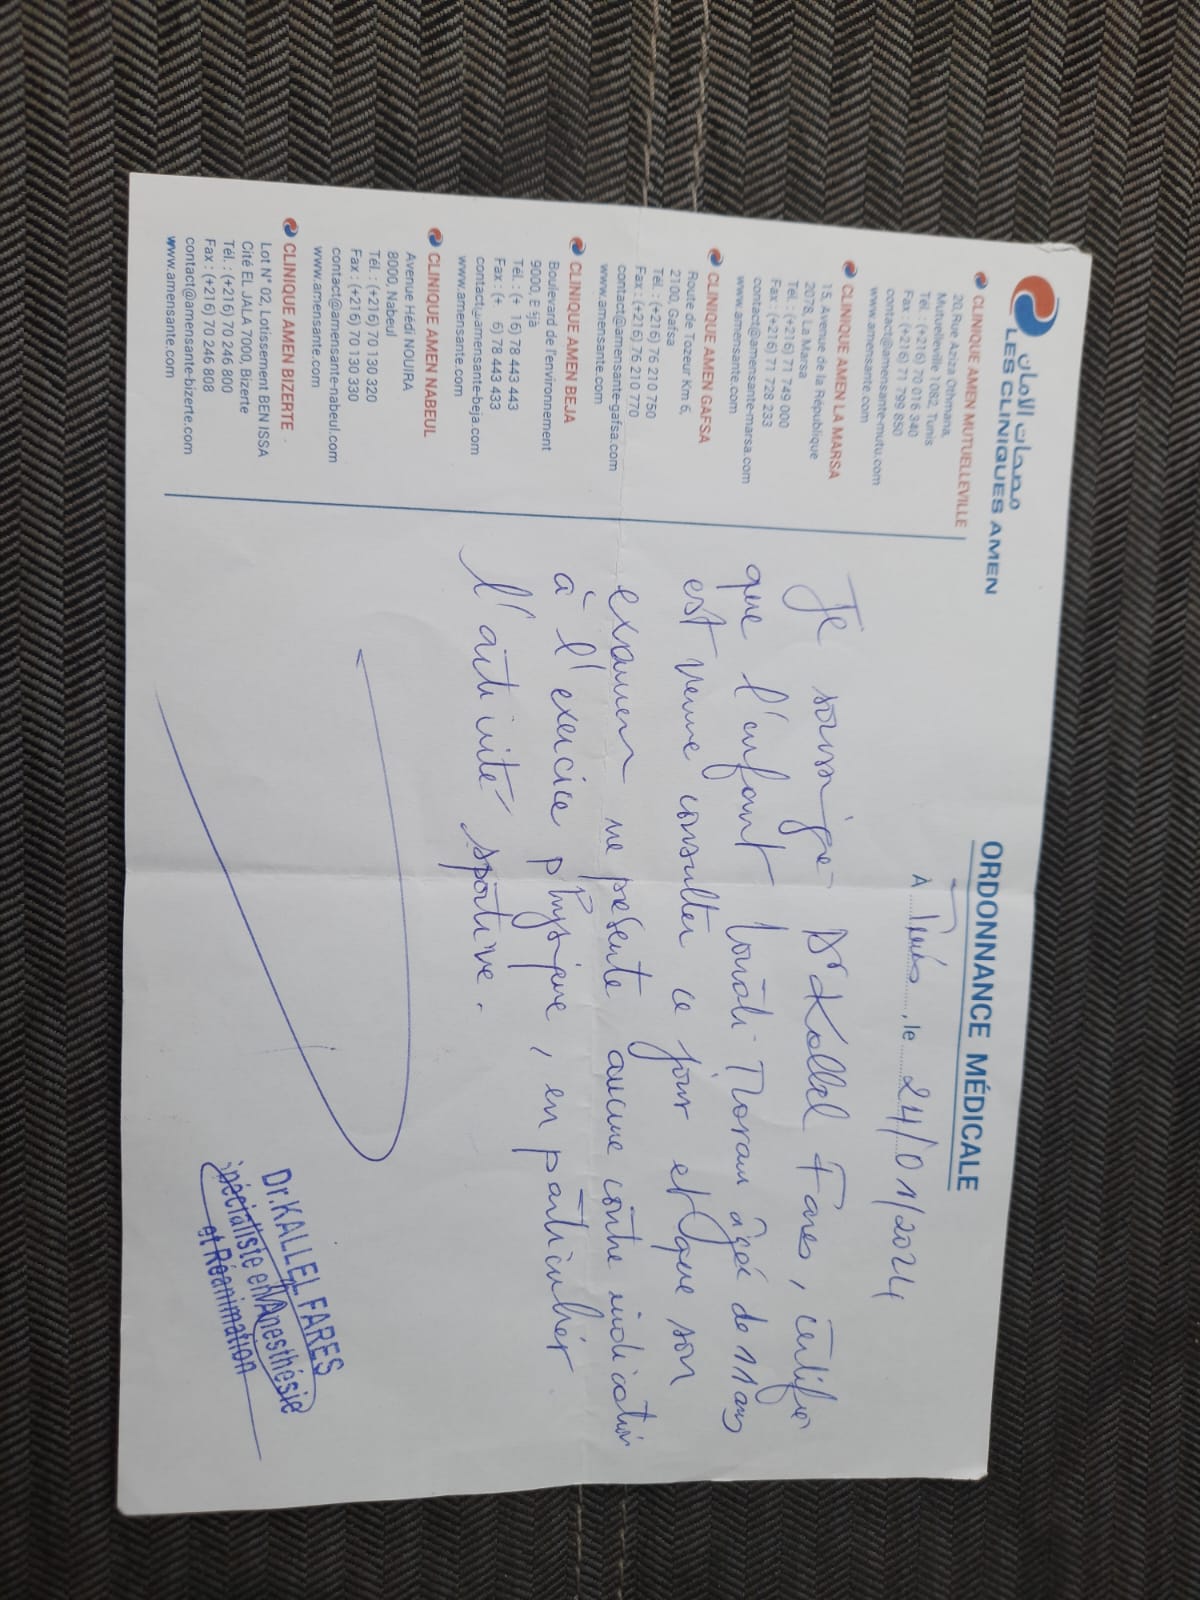 مصحات الأمان
LES CLINIQUES AMEN
CLINIQUE AMEN MUTUELLEVILLE
20, Rue Aziza Othmana,
Mutuelleville 1082, Tunis
Tél. : (+216) 70 016 340
Fax : (+216) 71 799 850
contact@amensante-mutu.com
www.amensante.com
CLINIQUE AMEN LA MARSA
15, Avenue de la République
2078, La Marsa
Tél. : (+216) 71 749 000
Fax : (+216) 71 728 233
contact@amensante-marsa.com
www.amensante.com
CLINIQUE AMEN GAFSA
Route de Tozeur Km 6,
2100, Gafsa
Tél. : (+216) 76 210 750
Fax : (+216) 76 210 770
contact@amensante-gafsa.com
www.amensante.com
CLINIQUE AMEN BEJA
Boulevard de l'environnement
9000, Béjà
Tél. : (+ 16) 78 443 443
Fax : (+ 6) 78 443 433
contact@amensante-beja.com
www.amensante.com
CLINIQUE AMEN NABEUL
Avenue Hédi NOUIRA
8000, Nabeul
Tél. : (+216) 70 130 320
Fax : (+216) 70 130 330
contact@amensante-nabeul.com
www.amensante.com
CLINIQUE AMEN BIZERTE
Lot N° 02, Lotissement BEN ISSA
Cité EL JALA 7000, Bizerte
Tél. : (+216) 70 246 800
Fax : (+216) 70 246 808
contact@amensante-bizerte.com
www.amensante.com
ORDONNANCE MÉDICALE
À Tunis, le 24/01/2024
Je soussigné Dr Kallel Fares, certifie
que l'enfant âgé de 11 ans
est venue consulter ce jour et que son
examen ne présente aucune contre indication
à l'exercice physique, en particulier
l'activité sportive.
Dr. KALLEL FARES
Spécialiste en Anesthésie
et Réanimation